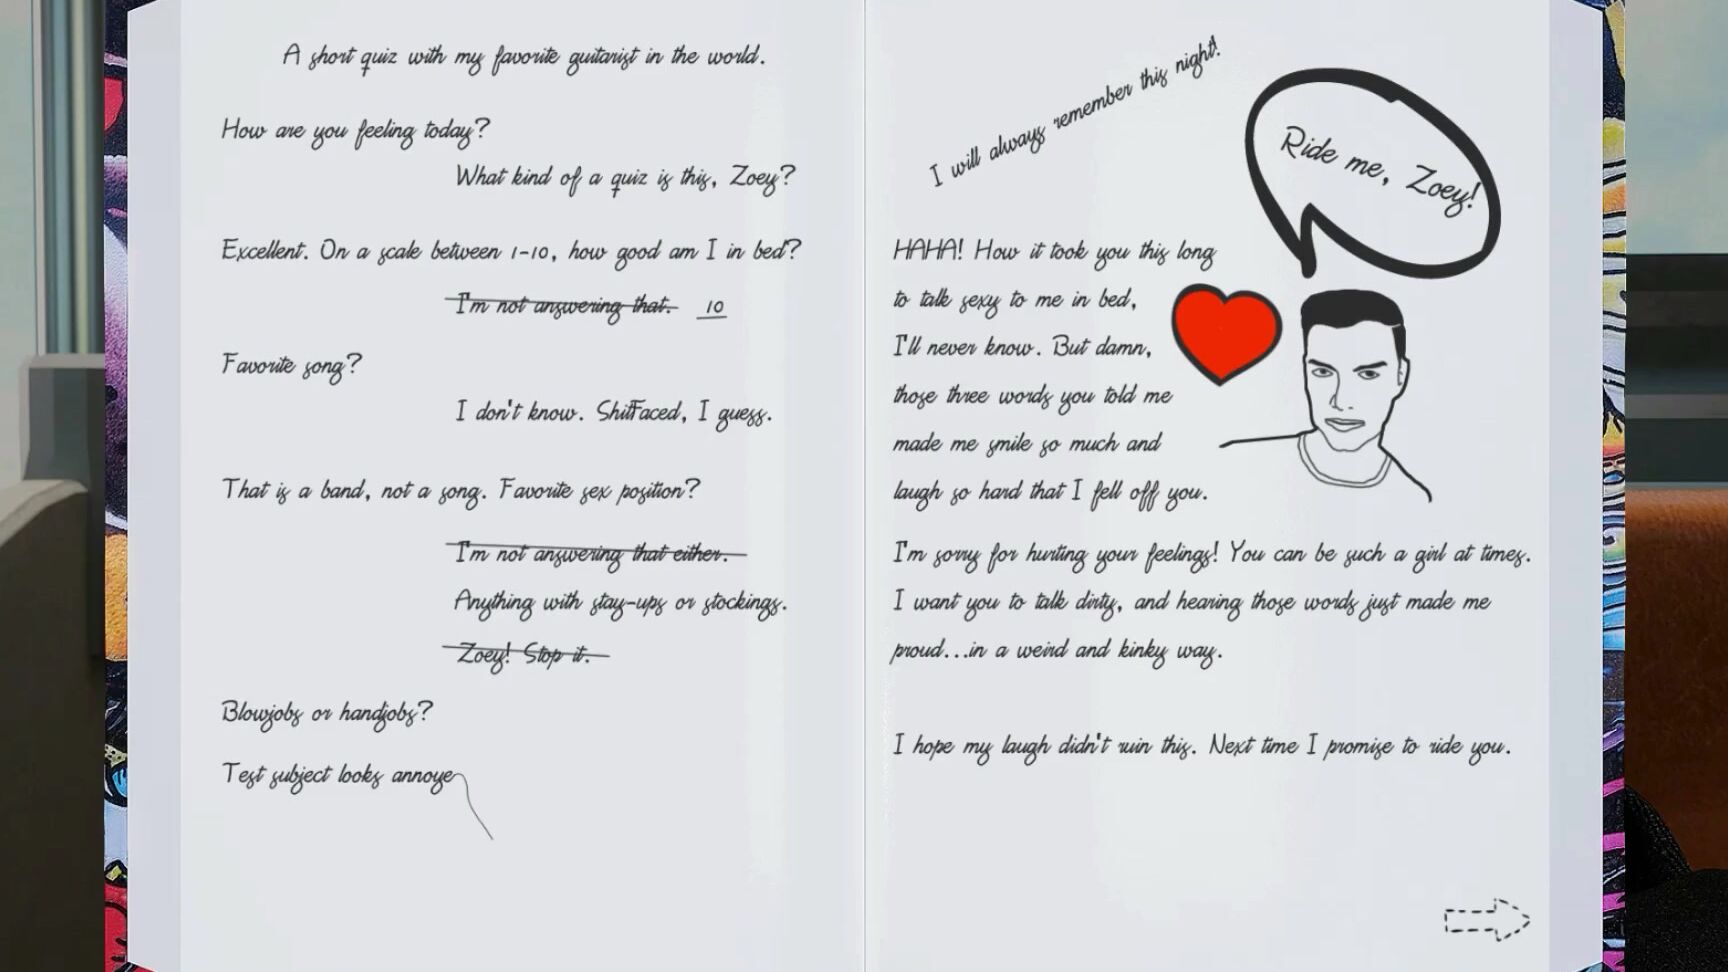 A short quiz with my favorite guitarist in the world.
How are you feeling today?
What kind of a quiz is this, Zoey?
Excellent. On a scale between 1-10, how good am I in bed?
I'm not answering that. 10
Favorite song?
I don't know. ShitFaced, I guess.
That is a band, not a song. Favorite sex position?
I'm not answering that either.
Anything with stay-ups or stockings.
Zoey! Stop it.
Blowjobs or handjobs?
Test subject looks annoye
I will always remember this night!
Ride me, Zoey!
HAHA! How it took you this long
to talk sexy to me in bed,
I'll never know. But damn,
those three words you told me
made me smile so much and
laugh so hard that I fell off you.
I'm sorry for hurting your feelings! You can be such a girl at times.
I want you to talk dirty, and hearing those words just made me
proud...in a weird and kinky way.
I hope my laugh didn't ruin this. Next time I promise to ride you.